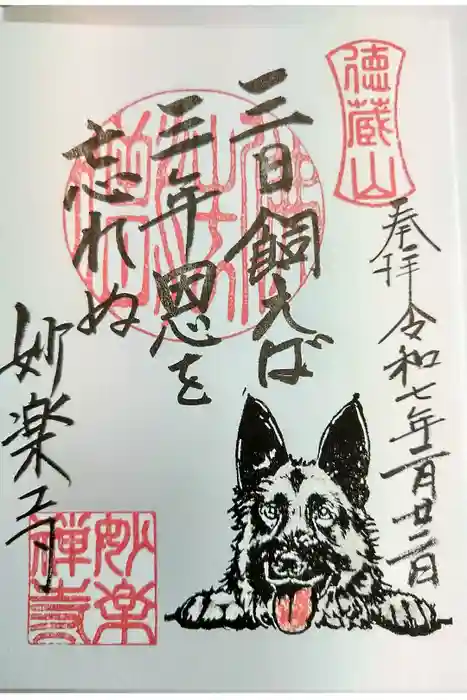 徳蔵山
奉拝 令和七年二月廿二日
三日飼えば
三年恩を
忘れぬ
妙楽寺
妙楽
禅寺